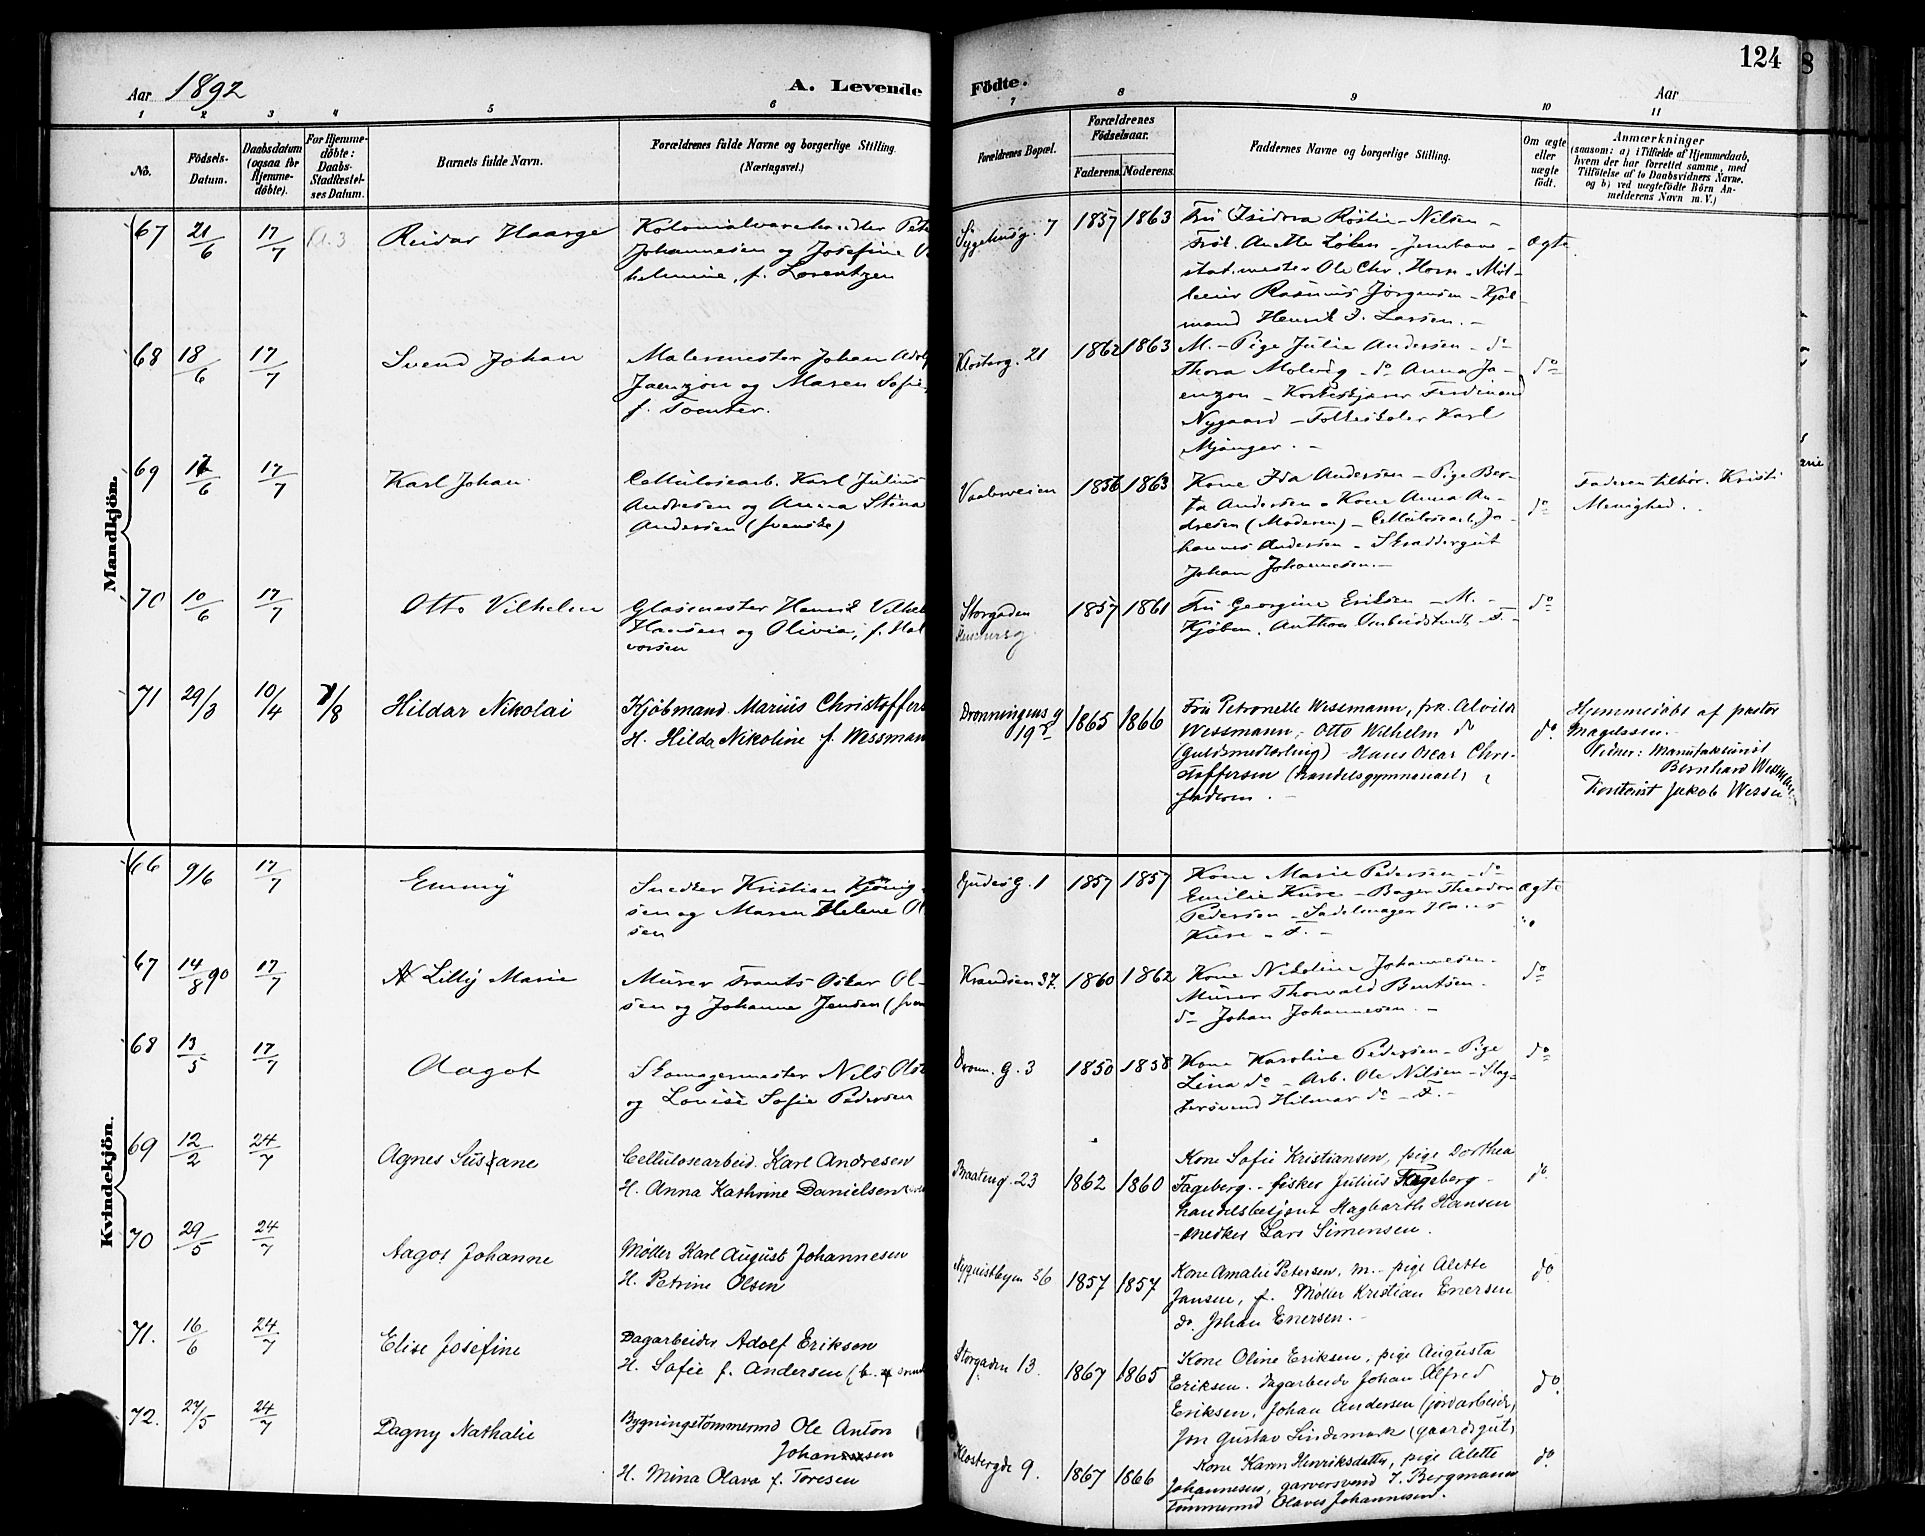 Aar 1892
A. Levende Födte.
124
Aar
1 2 3 4 5 6 7 8 9 10 11
No.
Födsels-Datum.
Daabsdatum (ogsaa for Hjemmedöbte).
For Hjemmedöbte: Daabs-Stadfæstelses Datum.
Barnets fulde Navn.
Forældrenes fulde Navne og borgerlige Stilling (Næringsvei.)
Forældrenes Bopæl.
Forældrenes Födselsaar.
Faderens. Moderens.
Faddernes Navne og borgerlige Stilling.
Om ægte eller uægte födt.
Anmærkninger
(saasom: a) i Tilfælde af Hjemmedaab,
hvem der har forrettet samme, med
Tilföielse af to Daabsvidners Navne.
og b) ved uægtefödte Börn An-
melderens Navn m. V.)
Mandkjön.
67 21/6 17/7 Reidar Haarge
Kolonialvarehandler Pet
Johannesen og Josefine Vi
helmine, f. Lorentzen
Sygehusg. 7 1857 1863
Fru Isidora Röstie - Nilsen -
Frök. Anette Löken - Jernbane -
stat.mester Ole Chr. Horn - Möl-
leeier Rasmus Jörgensen - Kjöb-
mand Henrik J. Larsen. -
ægte
68 18/6 17/7 Svend Johan
Malermester Johan Adolf
Jaenzon og Maren Sofie,
f. Toenter.
Klosterg. 21 1862 1863
M. - Pige Julie Andersen - do
Thora Molvig - do Anna Ja-
enzon - Ferdinand
Nygaard - Karl
Mjanger. -
do
69 17/6 17/7 Karl Johan
Cellulosearb. Karl Julius
Andresen og Anna Stina
Andersen (svenske)
Vaaleveien 1856 1863
Kone Ida Andersen - Pige Ber-
ta Andersen - Kone Anna An-
dresen (Moderen) - Cellulosearb. Jo-
hannes Andersen - Skræddergut
Johan Johannesen. -
do
Faderen tilhör. Kristi
Menighed.
70 10/6 17/7 Otto Vilhelm
Glasmester Henrik Vilhel
Hansen og Olivia, f. Hal
vorsen
Storgaden 1857 1861
Fru Georgine Eriksen - M. -
Kjöbm. Anthon - F. -
do
71 29/3 10/4 7/8 Hildar Nikolai
Kjöbmand Marius Christoffers
H. Hilda Nikoline f. Wessman
Dronningens g 19 1865 1866
Fru Petronelle Wessmann, frk. Alvilde
Wessmann, Otto Wilhelm do
(Guldsmedlærling) - Hans Oscar Chri-
stoffersen (handelsgymnasiast)
faderen. -
do
Hjemmedöbt af pastor
Magelssen. -
Vidner: Manufakturist
Bernhard Wessmann
Kontorist Jakob Wessm
Kvindekjön.
66 9/6 17/7 Emmy
Snedker Kristian Kjönig-
sen og Maren Helene Ol
sen
Gudes G. 1 1857 1857
Kone Marie Pedersen - do
Emilie Kure - Bager Theodor
Pedersen - Sadelmager Hans
Kure - F. -
ægte
67 14/8 90 17/7 Lilly Marie
Murer Frants Oskar Ol-
sen og Johanne Jensen (sven
37. 1860 1862
Kone Nikoline Johannesen -
Murer Thorvald Berntsen.
do Johan Johannesen. -
do
68 13/5 17/7 Aagot
Skomagermester Nils Olse
og Lovise Sofie Pedersen
Dronn. G. 3 1850 1858
Kone Karoline Pedersen - Pige
Lina do - Arb. Ole Nilsen - Slag-
tersvend Hilmar do - F. -
do
69 12/2 24/7 Agnes Susane
Cellulosearbeid. Karl Andresen
H. Anna Kathrine Danielsen
Braateng. 23 1862 1860
Kone Sofie Kristiansen, pige Dorthea
Fageberg. - fisker Julius Fageberg -
handelsbetjent Hagbarth Hansen
- snedker Lars Simensen.
do
70 29/5 24/7 Aagot Johanne
Möller Karl August Johannesen
H. Petrine Olsen
Nyquistbyen 36 1857 1857
Kone Amalie Petersen, m. - pige Alette
Jansen, f. Möller Kristian Enersen
do. Johan Enersen. -
do
71. 16/6 24/7 Elise Josefine
Dagarbeider Adolf Eriksen
H. Sofie f. Andersen (b.
Storgaden 13. 1867 1865
Kone Oline Eriksen, pige Augusta
Eriksen. Dagarbeide Johan Alfred
Eriksen, Johan Andersen (jordarbeide)
Jon Gustav Lindemark (gaardsgut)
do
72. 27/5 24/7 Dagny Nathalie
Bygningstömmermd Ole Anton
Johansen
H. Mina Olava f. Toresen
Klostergde 9. 1867 1866
Kone Karen Henriksdatter, pige Alette
Johannesen, garversvend J. Bergmann
Tömmermd Olaves Johannesen.
do